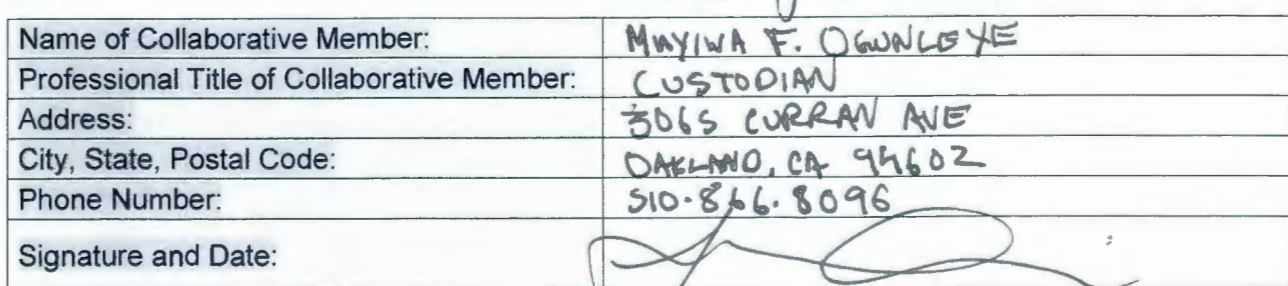 Name of Collaborative Member: MUYIWA F. OGUNLEYE
Professional Title of Collaborative Member: CUSTODIAN
Address: 3065 CURRAN AVE
City, State, Postal Code: OAKLAND, CA 94602
Phone Number: 510.866.8096
Signature and Date: